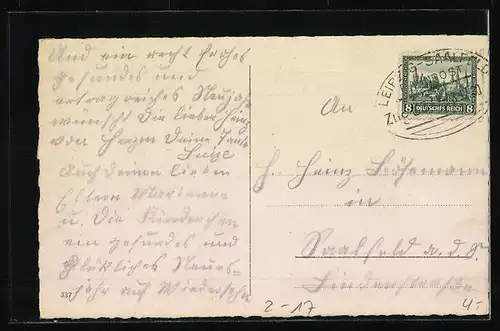 Und ein recht frohes
gesundes und
ertragreiches Neujahr
wünscht Dir lieber Heinz
von Herzen Deine Tante
Auch Deinen lieben
Eltern Marianne
u. Die Kinderchen
ein gesundes und
glückliches Neues-
Jahr auf Wiedersehn
337
An
H. Heinz
in
Saalfeld a. d. S.
Lindenstraße
LEIPZIG-SAALFELD
8 DEUTSCHES REICH 8
2-17
4-